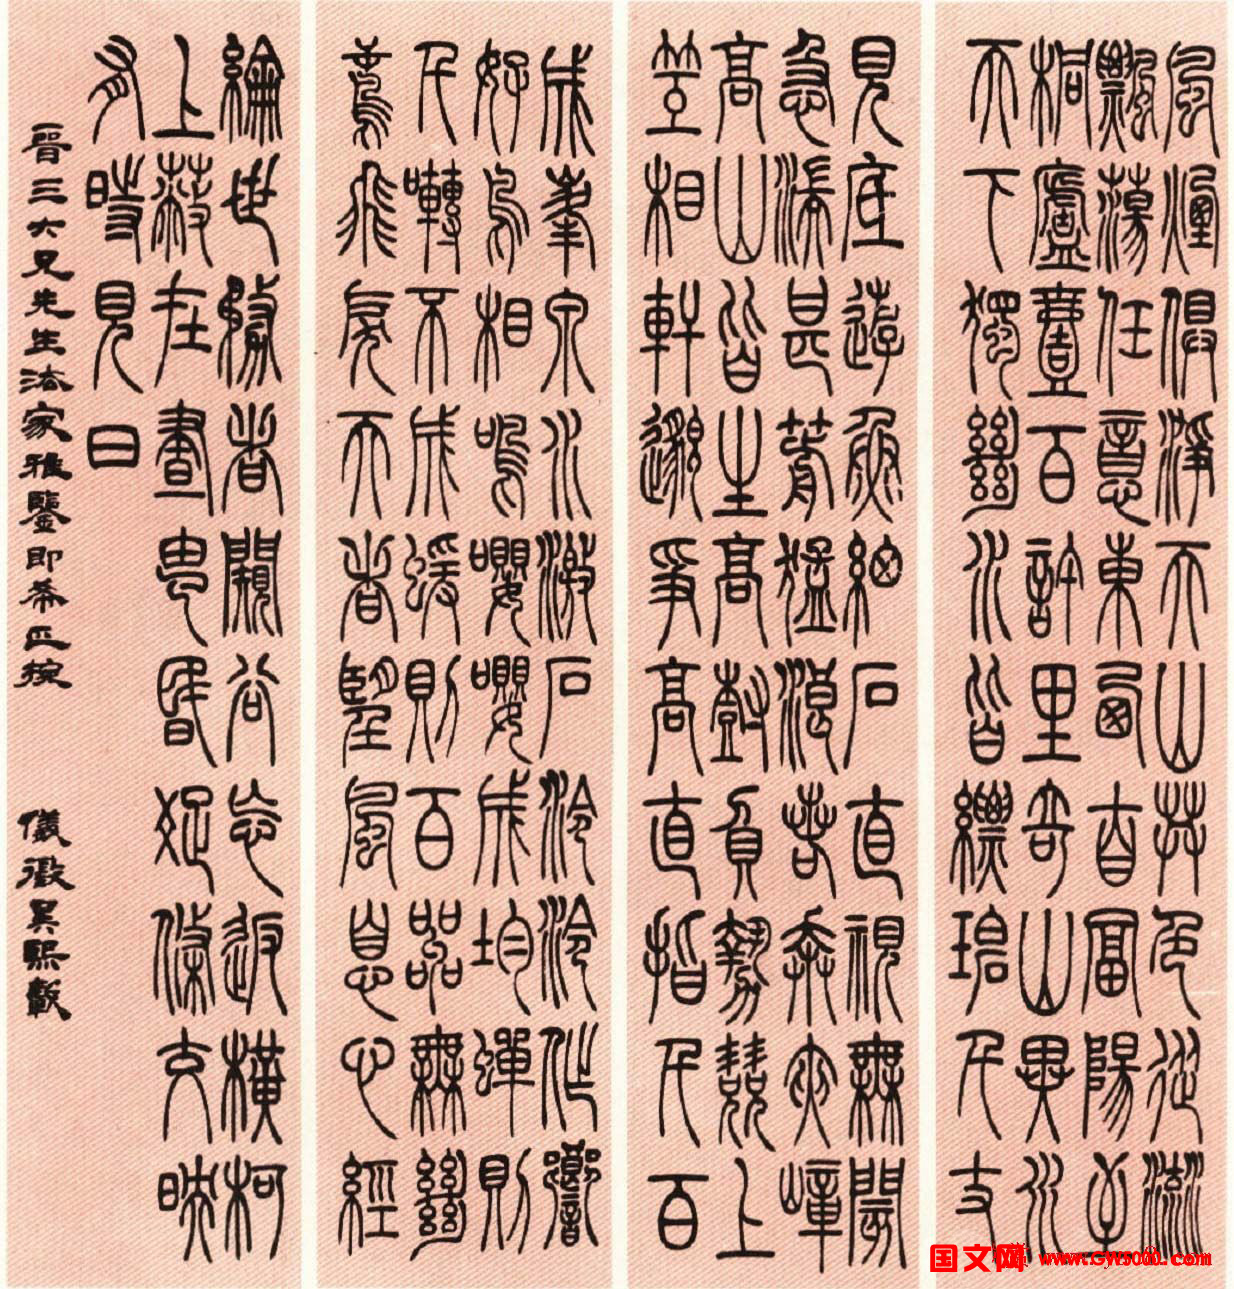 風煙俱淨天山共色從流
飄蕩任意東西自富陽至
桐廬壹百許里奇山異水
天下獨絕水皆縹碧千丈
見底遊魚細石直視無閡
急湍甚箭猛浪若奔夾嶂
高山皆生高樹負勢競上
互相軒邈爭高直指千百
成峯泉水激石泠泠作響
好鳥相鳴嚶嚶成均蟬則
千囀不成蝯則百無絕
鳶飛戾天者望風息心經
綸世務者闚谷忘返橫柯
上蔽在晝昏疏條交映
有時見日
晉三大兄先生法家雅鑒即希正捥
儀徵吳熙載
国文网 www.GW5000.com